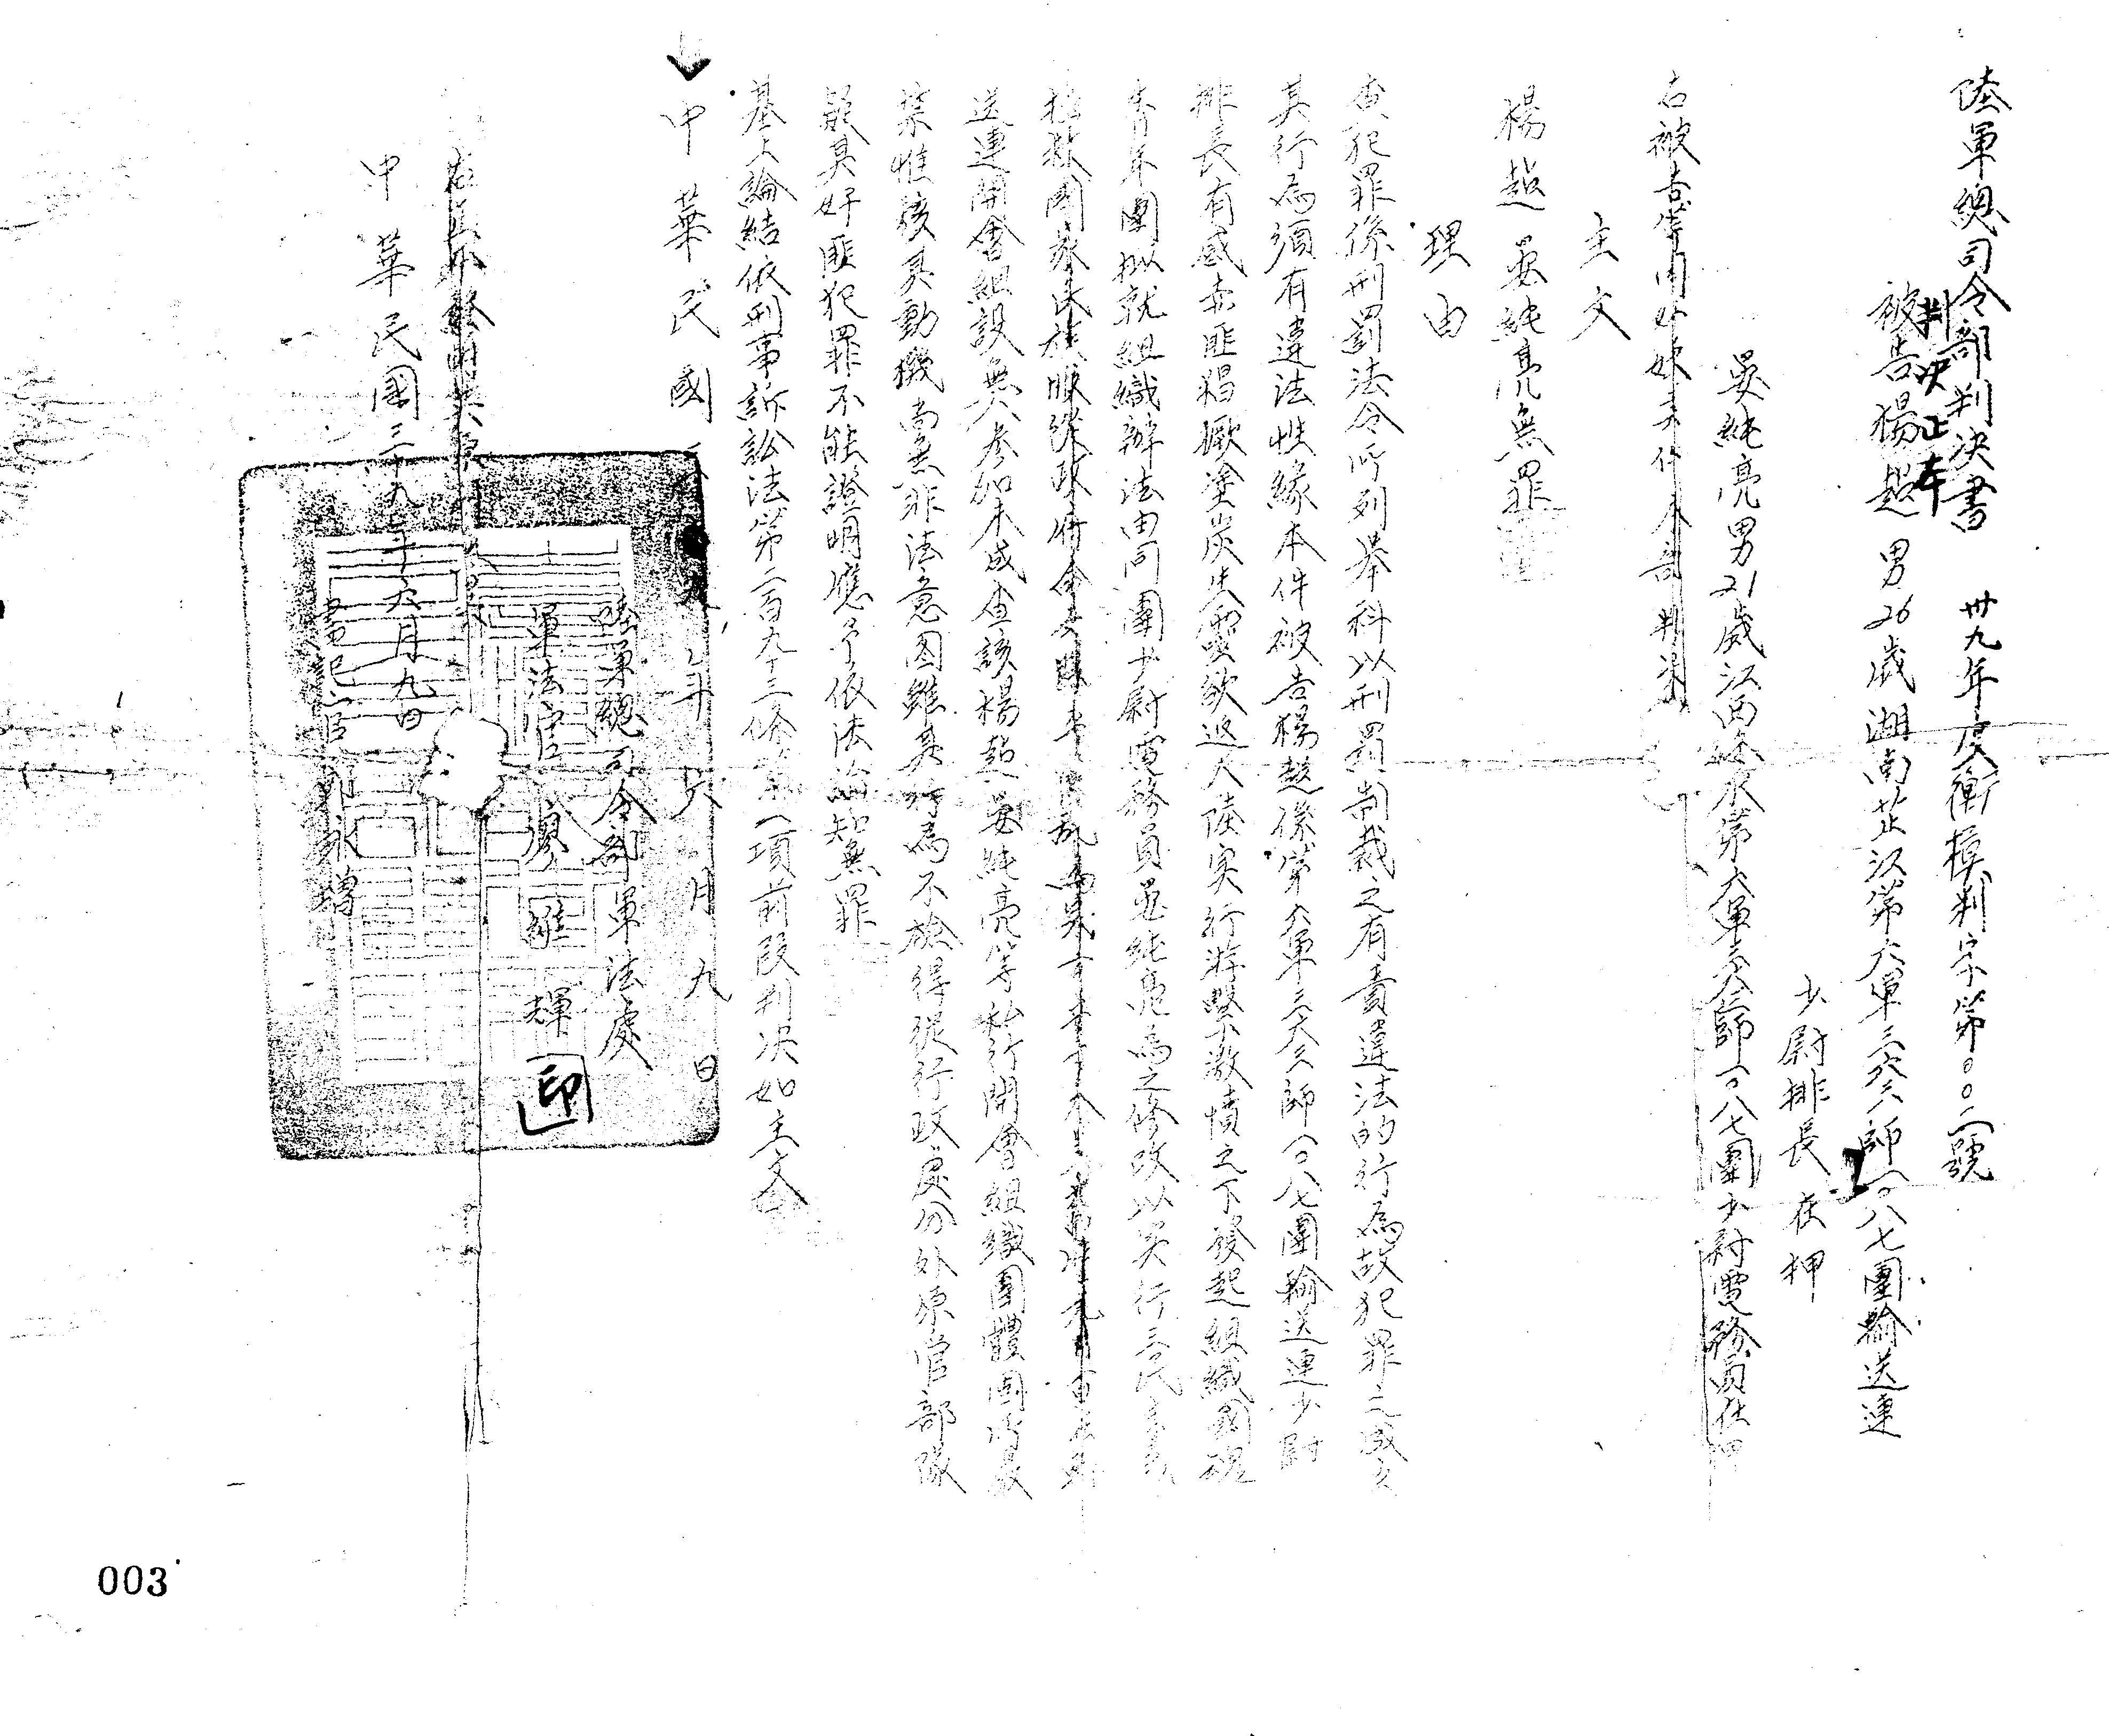 陸軍總司令部判決書 卅九年度衡模判字第〇〇二號
判決正本
被告楊超 男26歲湖南芷江第六軍三六三師一〇八七團輸送連
少尉排長在押
晏純亮男21歲江西修水第六軍三六三師一〇八七團少尉電務員在押
右被告等因奸嫌案件本部判決
主文
楊超晏純亮無罪
理由
查犯罪係刑罰法令所列舉科以刑罰制裁之有責違法的行為故犯罪之成立
其行為須有違法性緣本件被告楊超係第六軍三六三師一〇八七團輸送連少尉
排長有感赤匪猖獗塗炭生靈欲返大陸實行游擊激憤之下發起組織國魂
青年團擬就組織辦法由同團少尉電務員晏純亮為之修改以實行三民主義
拯救國家民族服從政府命令
送連開會組設無人參加未成查該楊超晏純亮等私行開會組織團體固所嚴
禁惟核其動機尚無非法意圖雖其行為不檢得從行政處分外原管部隊
疑其奸匪犯罪不能證明應予依法諭知無罪
基上論結依刑事訴訟法第二百九十三條第一項前段判決如主文
中華民國 年六月九日
陸軍總司令部軍法處
軍法官廖維輝 印
右正本證明與原
中華民國三十九年六月九日
書記官 增
003